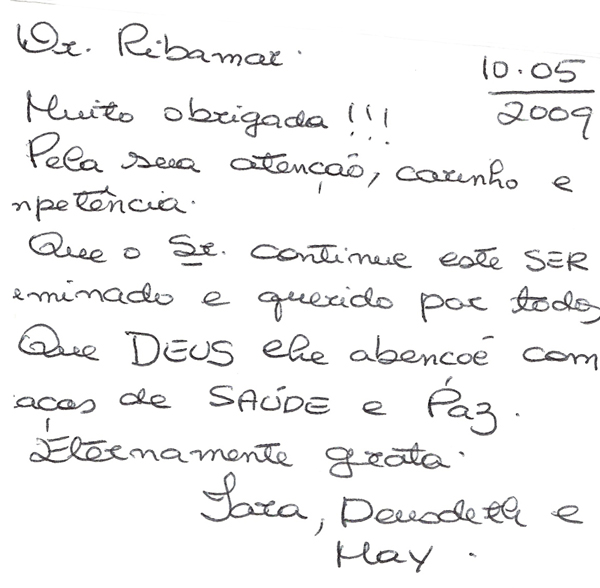 Dr. Ribamar.
10.05
2009
Muito obrigada!!!
Pela sua atenção, carinho e
npetência.
Que o Sr. continue este SER
eminado e querido por todos
Que DEUS lhe abencoé com
acas de SAÚDE e Paz.
Eternamente grata.
Iara, Deusdeth e
May.